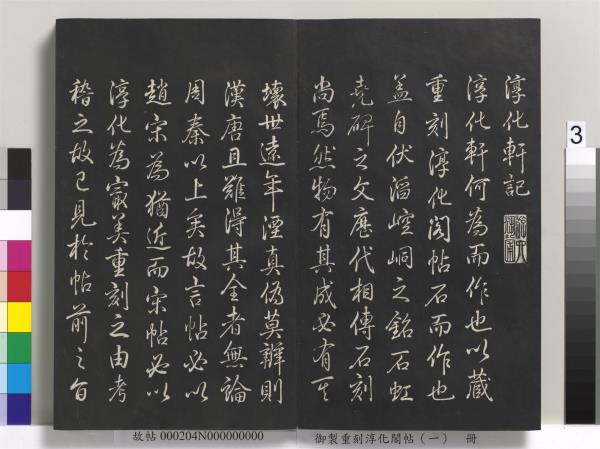 淳化軒記
淳化軒何為而作也以藏
重刻淳化閣帖石而作也
盖自伏滔崆峒之銘石虹
堯碑之文歷代相傳石刻
尚焉然物有其成必有其
壞世遠年湮真偽莫辨則
漢唐且難得其全者無論
周秦以上矣故言帖必以
趙宋為猶近而宋帖必以
淳化為最美重刻之由考
稽之故已見於帖前之旨
3
故帖 000204N000000000
御製重刻淳化閣帖（一） 冊